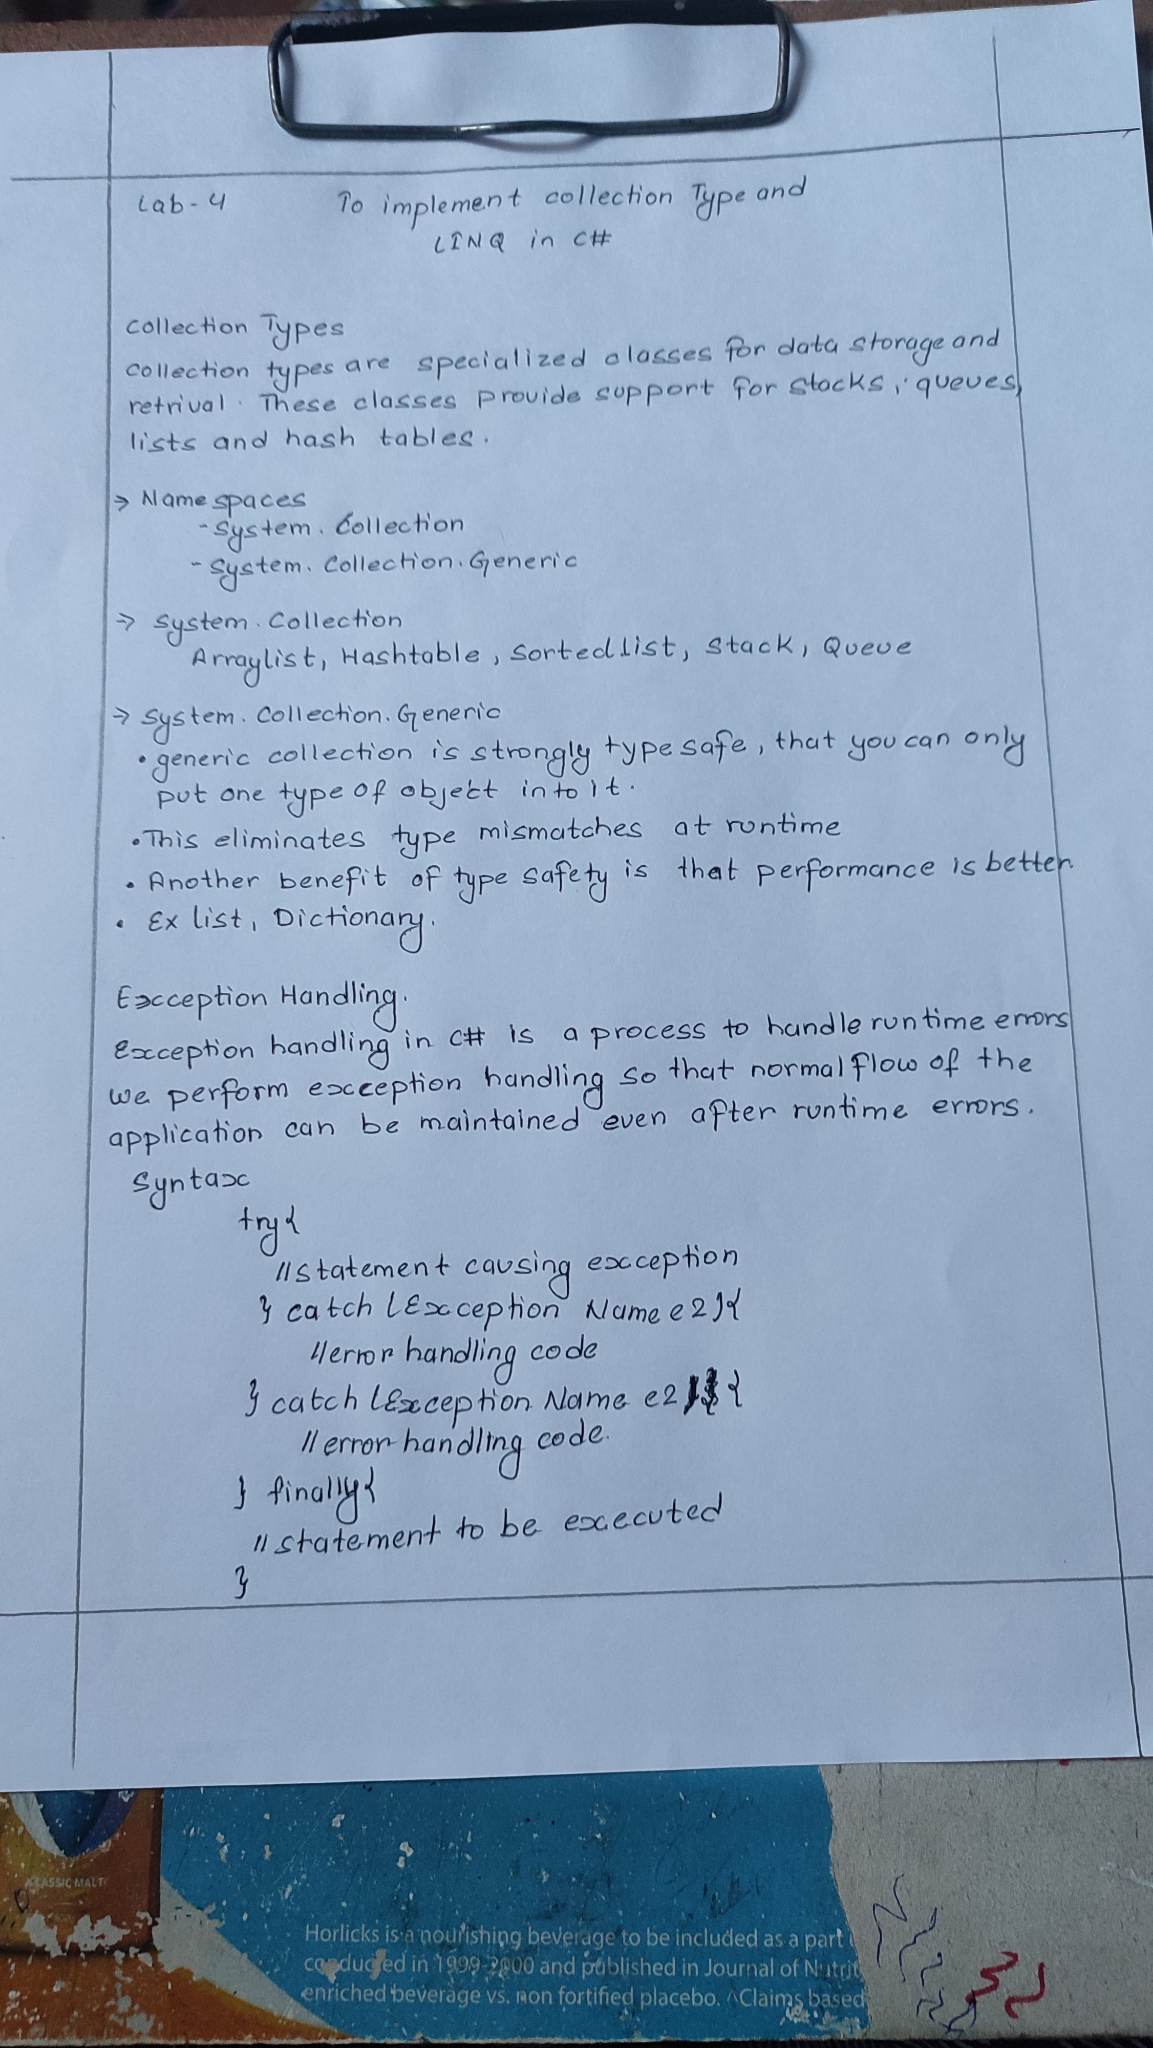 Lab-4 To implement collection Type and
LINQ in C#
Collection Types
collection types are specialized classes for data storage and
retrival. These classes provide support for stacks, queues,
lists and hash tables.
→ Namespaces
- System. Collection
- System. Collection. Generic
→ System. Collection
Arraylist, Hashtable, Sortedlist, Stack, Queue
→ System. Collection. Generic
• generic collection is strongly type safe, that you can only
put one type of object into it.
• This eliminates type mismatches at runtime
• Another benefit of type safety is that performance is better.
• Ex list, Dictionary.
Exception Handling.
Exception handling in C# is a process to handle runtime errors
we perform exception handling so that normal flow of the
application can be maintained even after runtime errors.
Syntax
try{
//statement causing exception
} catch (Exception Name e2){
//error handling code
} catch (Exception Name e2){
//error handling code.
} finally{
//statement to be executed
}
CLASSIC MALT
Horlicks is a nourishing beverage to be included as a part
conducted in 1999-2000 and published in Journal of Nutrit
enriched beverage vs. non fortified placebo. ^Claims based